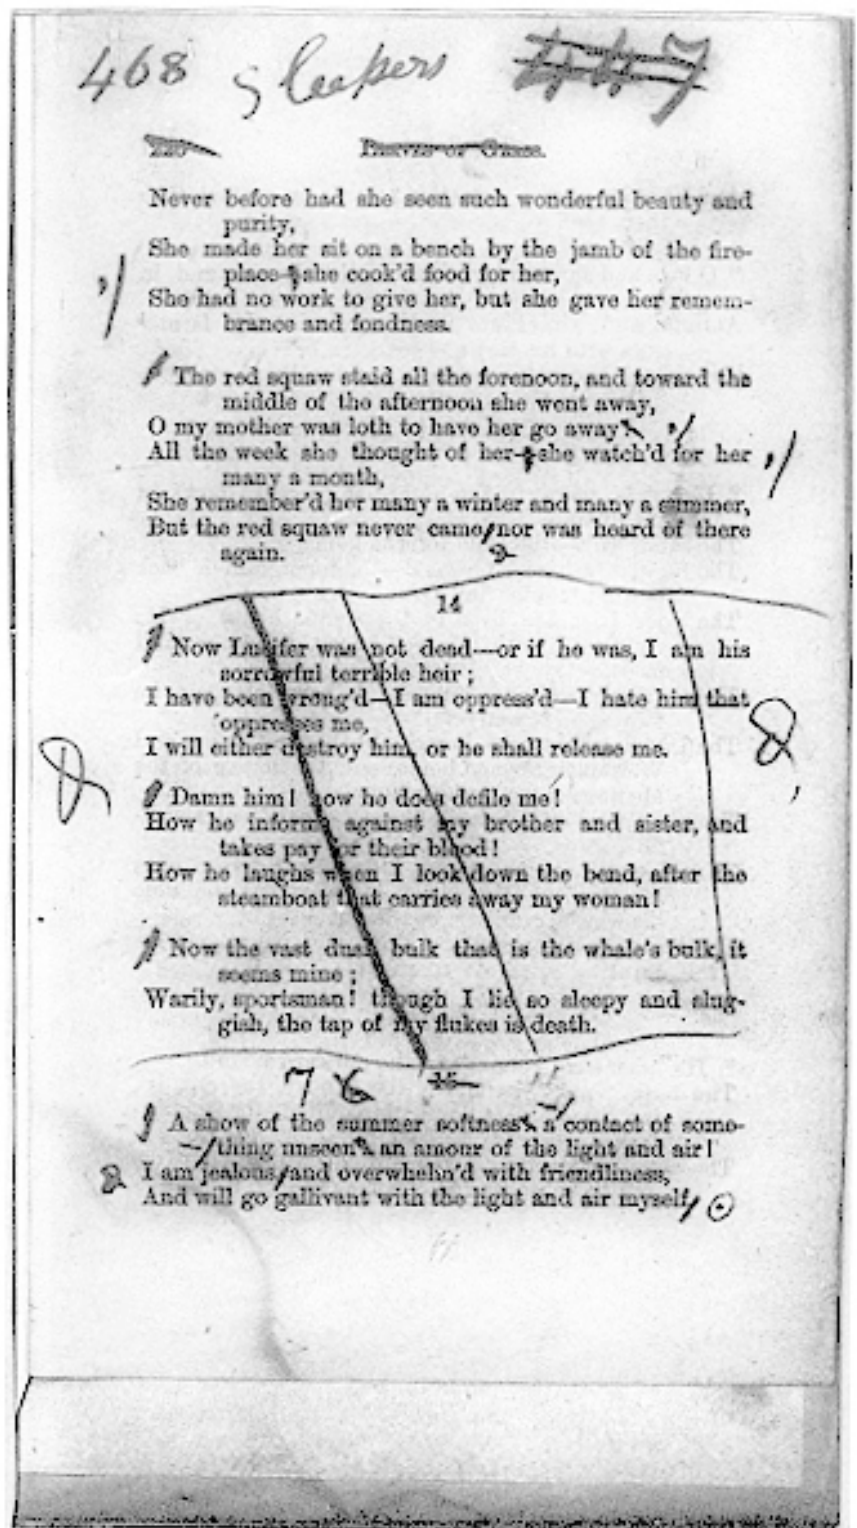 468 Sleepers 447
220 LEAVES OF GRASS.
Never before had she seen such wonderful beauty and
purity,
She made her sit on a bench by the jamb of the fire-
place—she cook'd food for her,
She had no work to give her, but she gave her remem-
brance and fondness.
The red squaw staid all the forenoon, and toward the
middle of the afternoon she went away,
O my mother was loth to have her go away
All the week she thought of her—she watch'd for her
many a month,
She remember'd her many a winter and many a summer,
But the red squaw never came, nor was heard of there
again.
14
Now Lucifer was not dead—or if he was, I am his
sorrowful terrible heir;
I have been wrong'd—I am oppress'd—I hate him that
oppresses me,
I will either destroy him, or he shall release me.
Damn him! how he does defile me!
How he informs against my brother and sister, and
takes pay for their blood!
How he laughs when I look down the bend, after the
steamboat that carries away my woman!
Now the vast dusk bulk that is the whale's bulk, it
seems mine;
Warily, sportsman! though I lie so sleepy and slug-
gish, the tap of my flukes is death.
7 15
A show of the summer softness a contact of some-
thing unseen an amour of the light and air!
I am jealous, and overwhelm'd with friendliness,
And will go gallivant with the light and air myself